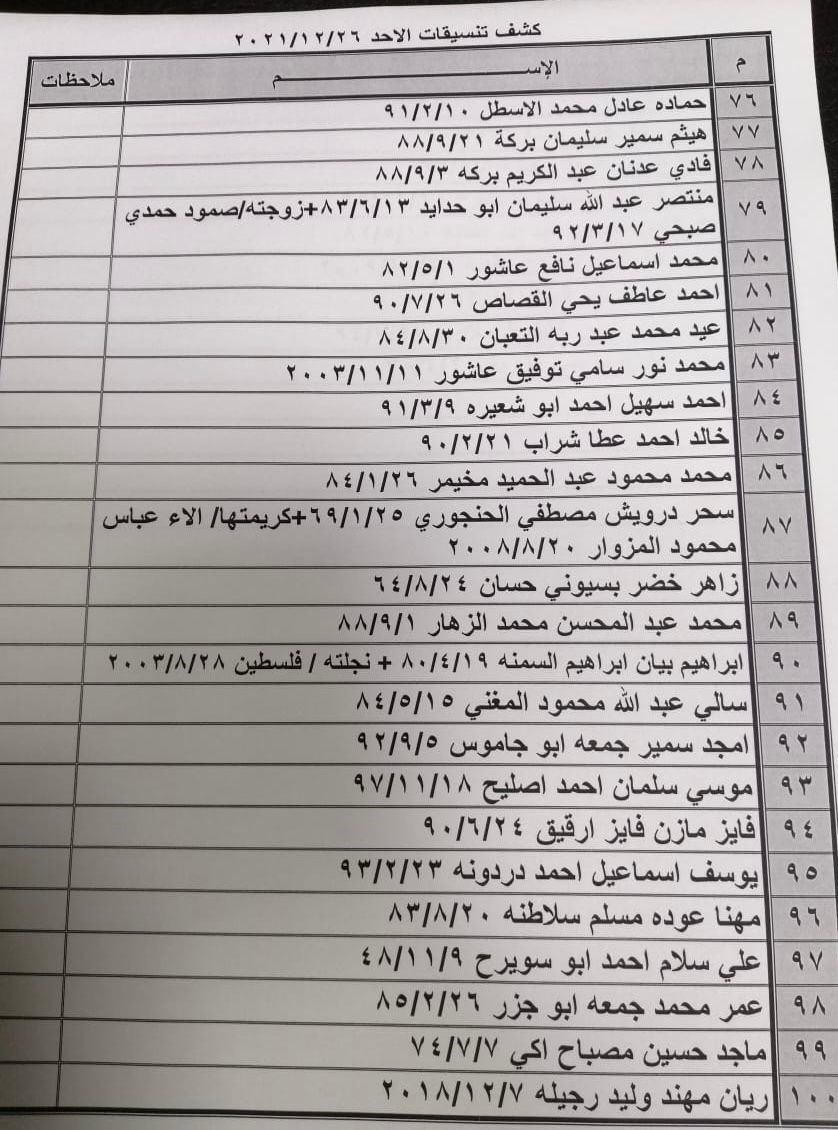 كشف تنسيقات الاحد ٢٠٢١/١٢/٢٦
م الإســـــــم ملاحظات
٧٦ حماده عادل محمد الاسطل ٩١/٢/١٠
٧٧ هيثم سمير سليمان بركة ٨٨/٩/٢١
٧٨ فادي عدنان عبد الكريم بركه ٨٨/٩/٣
٧٩ منتصر عبد الله سليمان ابو حدايد ٨٣/٦/١٣+زوجته/صمود حمدي
صبحي ٩٢/٣/١٧
٨٠ محمد اسماعيل نافع عاشور ٨٢/٥/١
٨١ احمد عاطف يحي القصاص ٩٠/٧/٢٦
٨٢ عيد محمد عبد ربه التعبان ٨٤/٨/٣٠
٨٣ محمد نور سامي توفيق عاشور ٢٠٠٣/١١/١١
٨٤ احمد سهيل احمد ابو شعيره ٩١/٣/٩
٨٥ خالد احمد عطا شراب ٩٠/٢/٢١
٨٦ محمد محمود عبد الحميد مخيمر ٨٤/١/٢٦
٨٧ سحر درويش مصطفي الحنجوري ٦٩/١/٢٥+كريمتها/ الاء عباس
محمود المزوار ٢٠٠٨/٨/٢٠
٨٨ زاهر خضر بسيوني حسان ٦٤/٨/٢٤
٨٩ محمد عبد المحسن محمد الزهار ٨٨/٩/١
٩٠ ابراهيم بيان ابراهيم السمنه ٨٠/٤/١٩ + نجلته / فلسطين ٢٠٠٣/٨/٢٨
٩١ سالي عبد الله محمود المغني ٨٤/٥/١٥
٩٢ امجد سمير جمعه ابو جاموس ٩٢/٩/٥
٩٣ موسي سلمان احمد اصليح ٩٧/١١/١٨
٩٤ فايز مازن فايز ارقيق ٩٠/٦/٢٤
٩٥ يوسف اسماعيل احمد دردونه ٩٣/٢/٢٣
٩٦ مهنا عوده مسلم سلاطنه ٨٣/٨/٢٠
٩٧ علي سلام احمد ابو سويرح ٤٨/١١/٩
٩٨ عمر محمد جمعه ابو جزر ٨٥/٢/٢٦
٩٩ ماجد حسين مصباح اكي ٧٤/٧/٧
١٠٠ ريان مهند وليد رجيله ٢٠١٨/١٢/٧